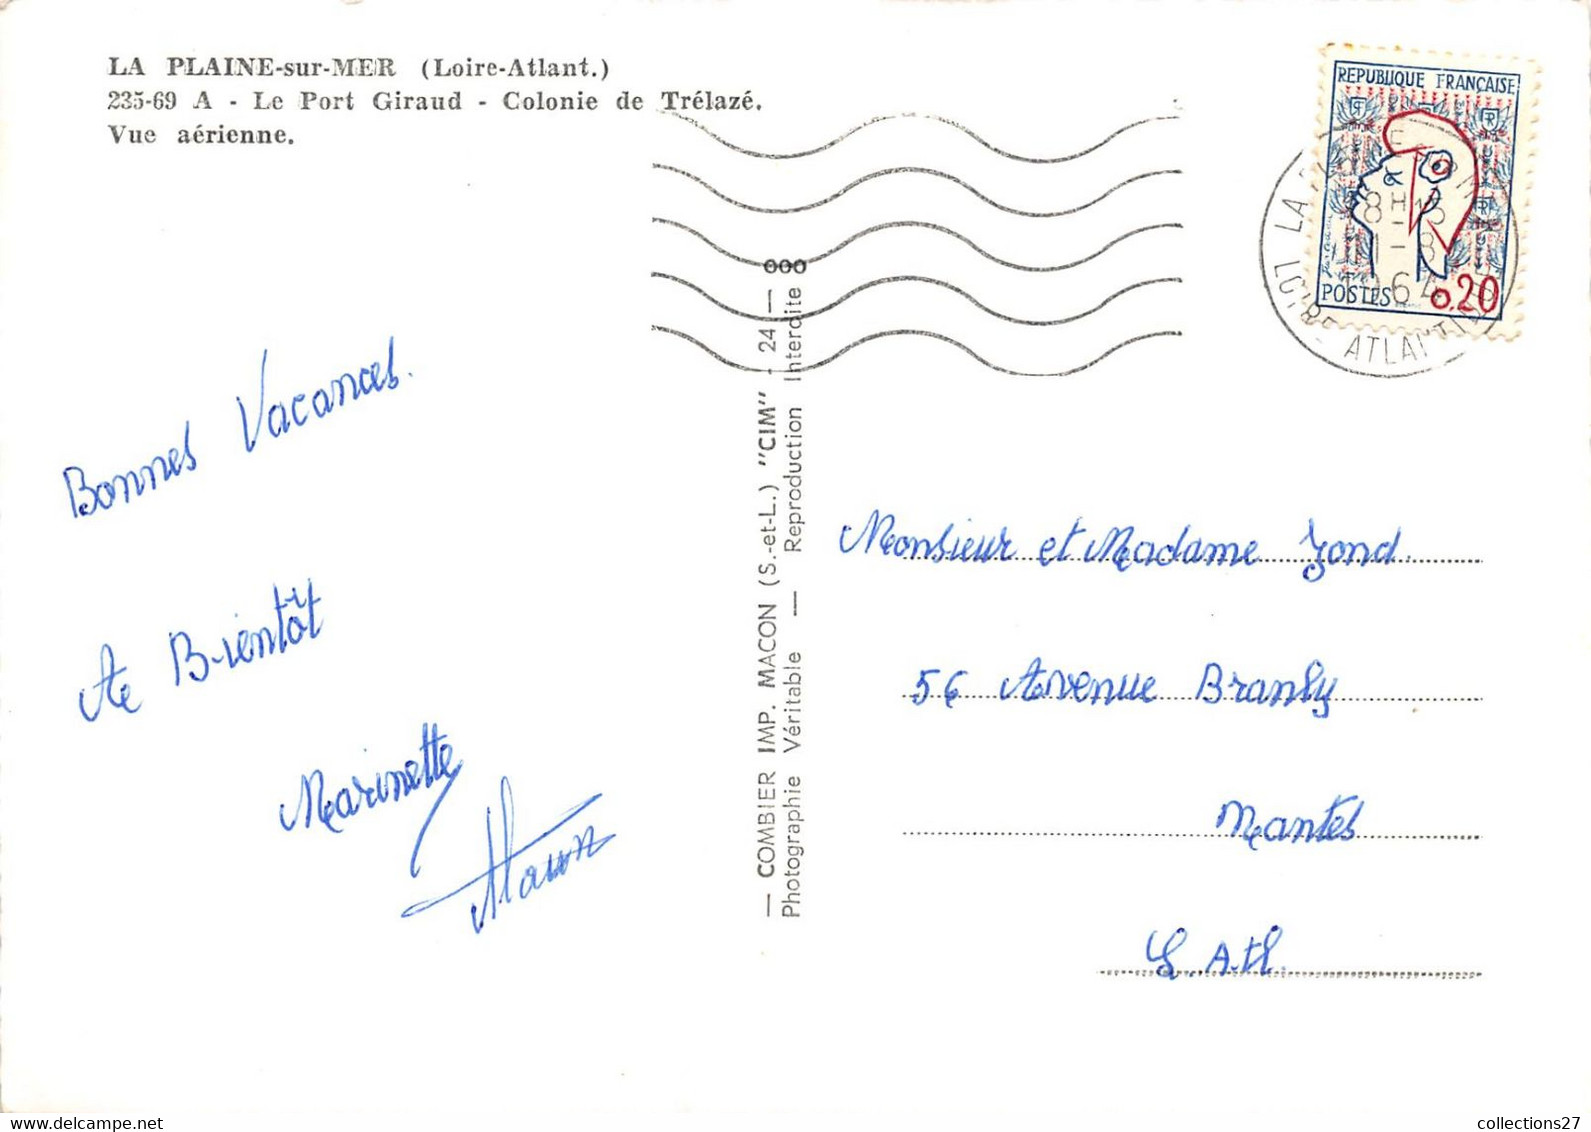 LA PLAINE-sur-MER (Loire-Atlant.)
235-69 A - Le Port Giraud - Colonie de Trélazé.
Vue aérienne.
REPUBLIQUE FRANÇAISE
POSTES 0.20
18H15
11-8
1964
LOIRE ATLANTIQUE
Bonnes Vacances.
A Bientôt
Marinette
— COMBIER IMP. MACON (S.-et-L.) "CIM" - 24 — 000
Photographie Véritable — Reproduction Interdite
Monsieur et Madame Jond.
56 Avenue Branly
Nantes
L. Atl.
collections27